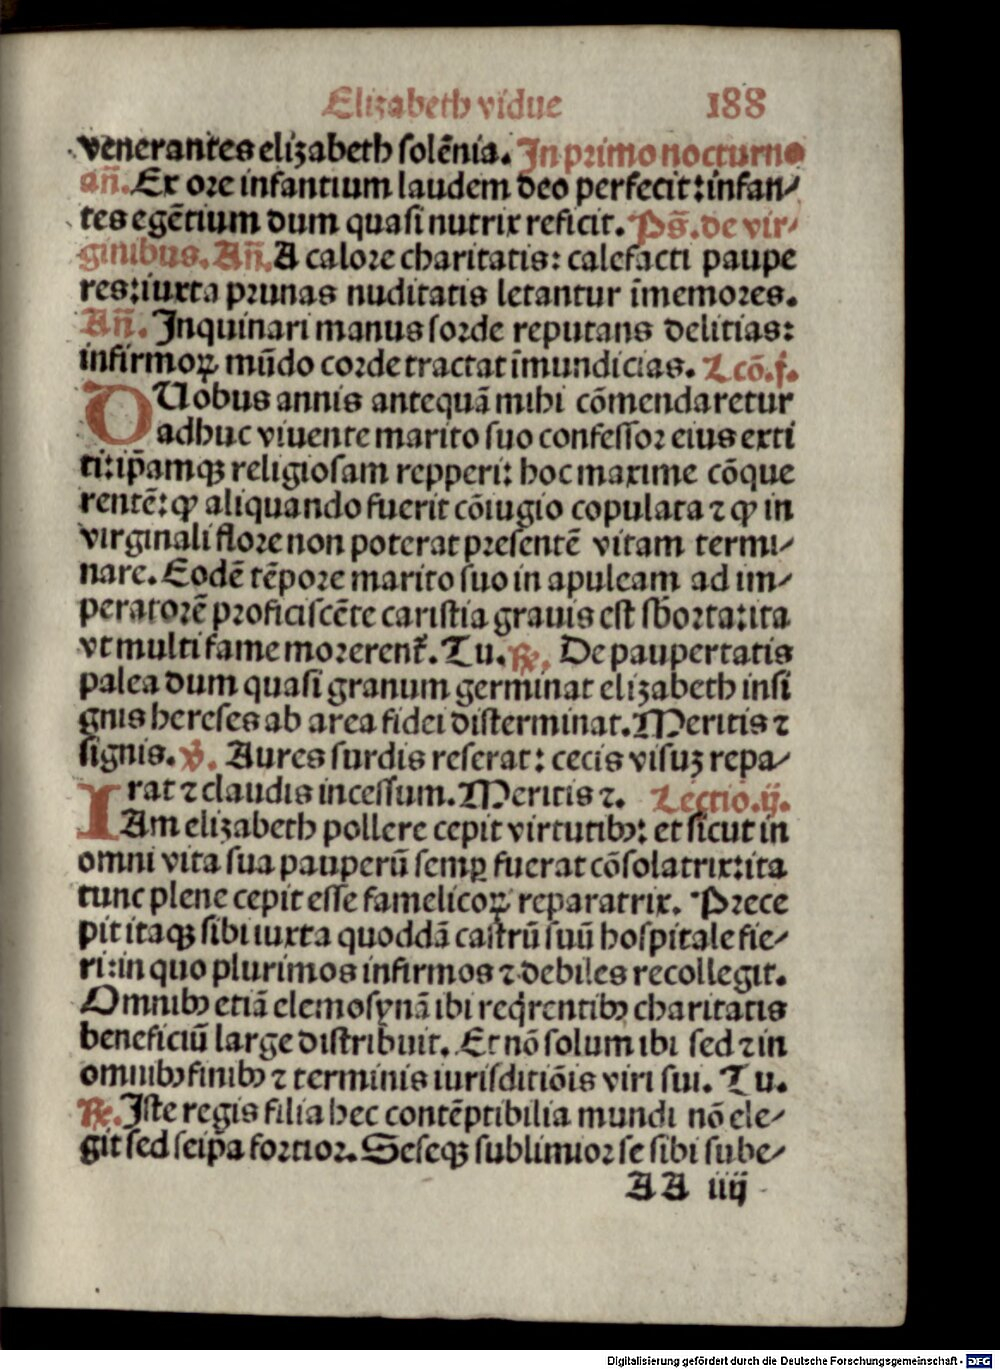 Elizabeth vidue 188
venerantes elizabeth solēnia. In primo nocturno
añ. Ex ore infantium laudem deo perfecit: infan⸗
tes egētium dum quasi nutrix reficit. Ps̄. de vir⸗
ginibus. Añ. A calore charitatis: calefacti paupe
res: iuxta prunas nuditatis letantur īmemores.
Añ. Inquinari manus sorde reputans delitias:
infirmoꝝ mūdo corde tractat īmundicias. Lcō.j.
DUobus annis antequā mihi cōmendaretur
adhuc viuente marito suo confessor eius exti
ti: ip̄amqꝫ religiosam repperi: hoc maxime cōque
rentē: ꝙ aliquando fuerit cōiugio copulata ⁊ ꝙ in
virginali flore non poterat presentē vitam termi⸗
nare. Eodē tēpore marito suo in apuleam ad im⸗
peratorē proficiscēte caristia grauis est sborta: ita
vt multi fame morerent᷑. Tu. ℟. De paupertatis
palea dum quasi granum germinat elizabeth insi
gnis hereses ab area fidei disterminat. Meritis ⁊
signis. ℣. Aures surdis reserat: cecis visuꝫ repa⸗
rat ⁊ claudis incessum. Meritis ⁊. Lectio.ij.
IAm elizabeth pollere cepit virtutibꝰ: et sicut in
omni vita sua pauperū semꝑ fuerat cōsolatrix: ita
tunc plene cepit esse famelicoꝝ reparatrix. Prece
pit itaqꝫ sibi iuxta quoddā castrū suū hospitale fie⸗
ri: in quo plurimos infirmos ⁊ debiles recollegit.
Omnibꝰ etiā elemosynā ibi reqͥrentibꝰ charitatis
beneficiū large distribuit. Et nō solum ibi sed ⁊ in
omnibꝰ finibꝰ ⁊ terminis iurisditiōis viri sui. Tu.
℟. Iste regis filia hec contēptibilia mundi nō ele⸗
git sed seip̄a fortior. Seseqꝫ sublimior se sibi sube⸗
AA iiij
Digitalisierung gefördert durch die Deutsche Forschungsgemeinschaft - DFG